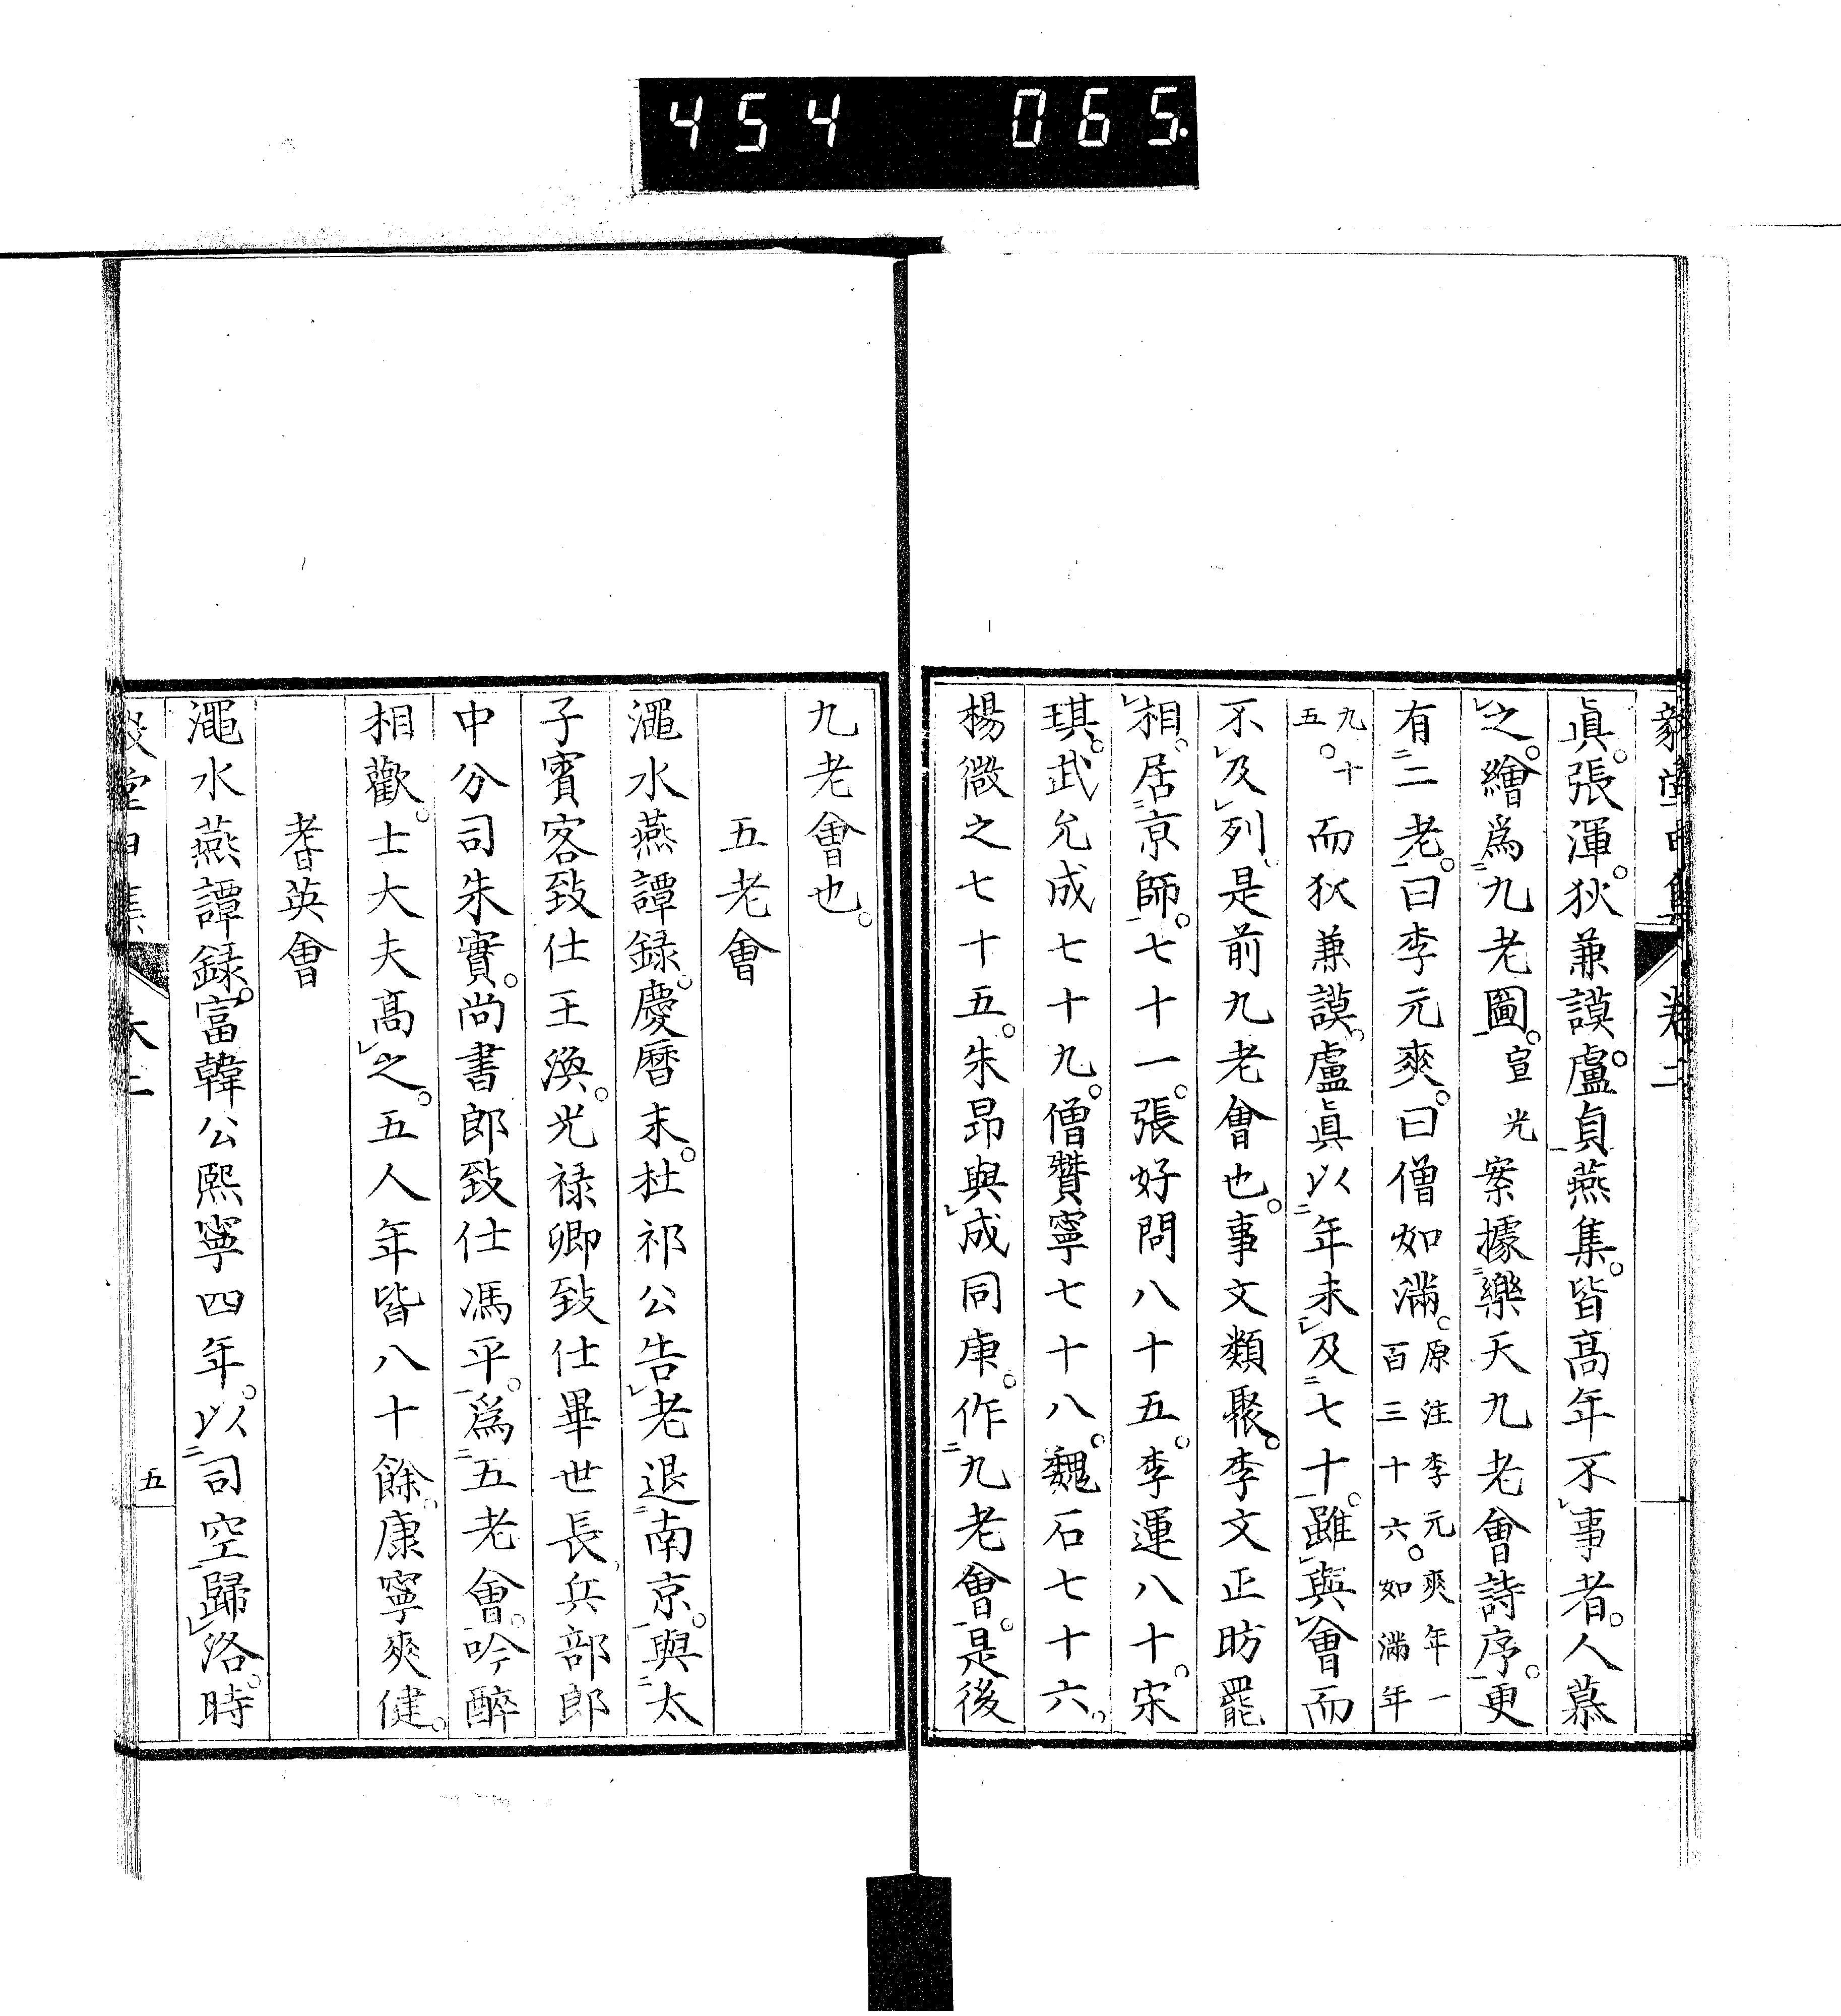 454 065
眞。張渾。狄兼謨。盧貞燕集。皆高年不事者。人慕
之。繪爲九老圖。宣光案據樂天九老會詩序。更
有二老。曰李元爽。曰僧如滿。原注李元爽年一百三十六。如滿年
九十五。而狄兼謨。盧眞以年未及七十。雖與會而
不及列。是前九老會也。事文類聚。李文正昉罷
相。居京師。七十一。張好問八十五。李運八十。宋
琪。武允成七十九。僧贊寧七十八。魏石七十六。
楊徴之七十五。朱昂與成同庚。作九老會。是後
九老會也。
五老會
澠水燕譚録。慶曆末。杜祁公告老退南京。與太
子賓客致仕王渙。光禄卿致仕畢世長。兵部郎
中分司朱實。尚書郎致仕馮平。爲五老會。吟醉
相歡。士大夫高之。五人年皆八十餘。康寧爽健。
耆英會
澠水燕譚録。富韓公熙寧四年。以司空歸洛。時
五